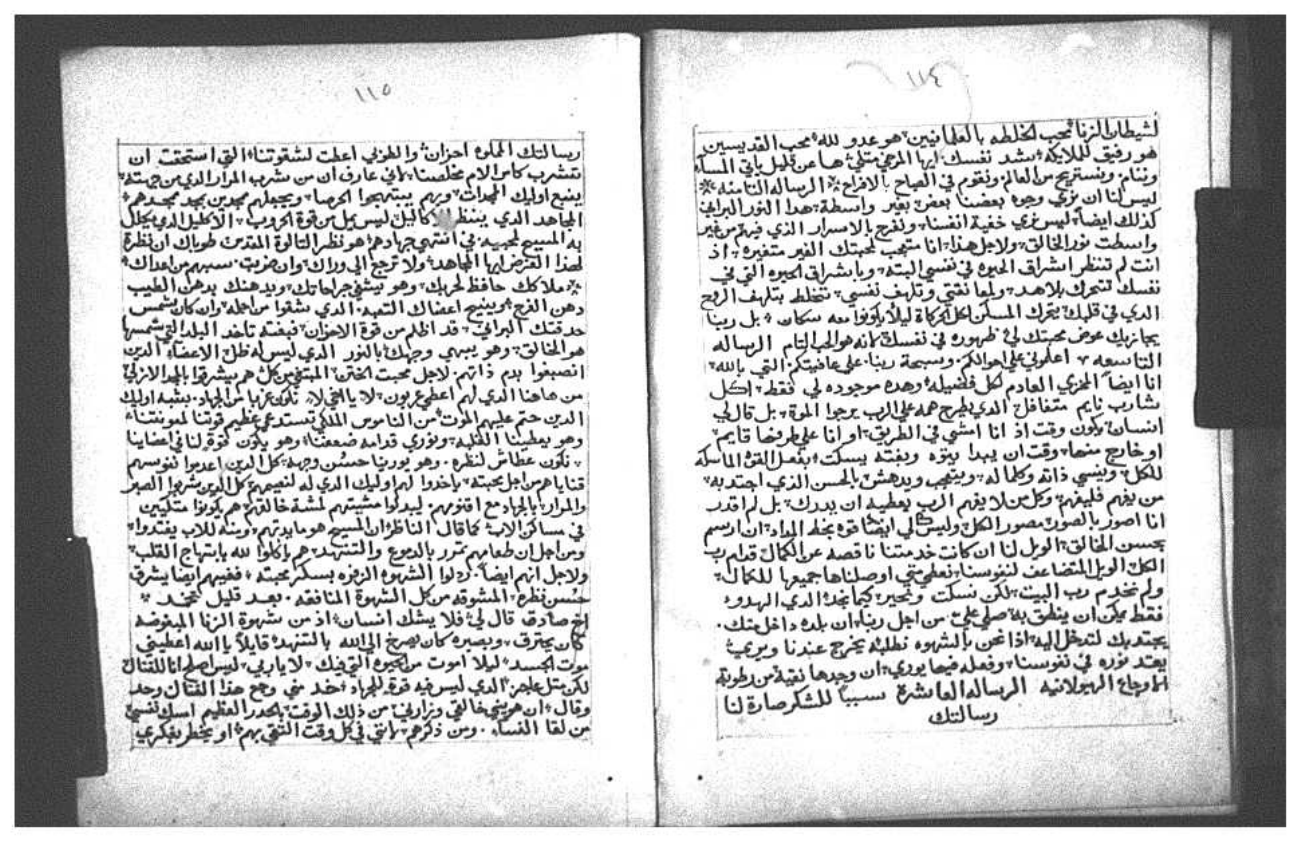 ١١٤
لشيطان الزنا محب الخلطه بالعلمانيين هو عدو لله محب القديسين
هو رفيق للملايكه شد نفسك ايها المرجي متلي ها عن قليل ياتي المسآ
وننام ونستريح من العالم ونقوم في الصباح بالافراح الرساله التامنه
ليس لنا ان نري وجوه بعضنا بعض بغير واسطة هدا النور البراني
كدلك ايضا ليس نري خفية انفسنا ونفرح بالاسرار الذي فيهم من غير
واسطت نور الخالق ولاجل هذا انا متعجب لمحبتك الغير متغيره اذ
انت لم تنظر اشراق الحيوه في نفسي البته وباشراق الحيوه التي في
نفسك تتحرك بلا هد ولمعانقتي وتلهف نفسي تختلط بتلهف الروح
الدي في قلبك يتحرك المسكن لكل حركاة ليلا يكونوا معه سكان بل ربنا
يجازيك عوض محبتك لي ظهوره في نفسك لانه هو الحب التام الرساله
التاسعه اعلموني علي احوالكم وسبحة ربنا علي عافيتكم التي بالله
انا ايضا المخزي العادم لكل فضيله وهده موجوده لي فقط اكل
شارب نايم متغافل الدي يطرح همه علي الرب يرجوا الموة بل قال لي
انسان يكون وقت اذ انا امشي في الطريق او انا علي طرفها قايم
او خارج منها وقت ان يبدا بنوه وبغته يسكت بفعل القوة الماسكه
للكل وينسي ذاته وكلما له ويتعجب ويدهش بالحسن الذي اجتدبه
من يفهم فليفهم وكل من لا يفهم الرب يعطيه ان يدرك بل لم اقدر
انا اصور بالصور مصور الكل وليس لي ايضا قوة بجلة المداد ان ارسم
بحسن الخالق الويل لنا ان كانت خدمتنا ناقصه عن الكمال قدام رب
الكل الويل المتضاعف لنفوسنا نعلم متي اوصلناها جميعها للكمال
ولم نخدم رب البيت لكن نسكت ونتحير كيما نجد الذي الهدوء
فقط يمكن ان ينطق به صلي علي من اجل ربنا ان بلده داخل منك
يجتدبك لتدخل اليه اذا نحن بالشهوه نطلبه يخرج عندنا ويرينا
بعد نوره في نفوسنا وفعله فيها يوري ان وجدها نقية من رطوبة
الاوجاع الهيولانيه الرساله العاشرة سببا للشكر صارة لنا
رسالتك
١١٥
رسالتك المملوه احزان والطوبي اعطت لشقوتنا التي استحقت ان
تتشرب كاس الام مخلصنا لاني عارف ان من شرب المرار الدي من جهته
ينبع اوليك المجدات وبهم يبتهجوا الحرصا ويجعلهم مجدين بمجد ممجدهم
المجاهد الدي ينتظر كاليل ليس يمل من قوة الحروب الاكليل الدي يكلل
به المسيح لمحبيه في انتهي جهادهم هو نظر التالوت المقدس طوباك ان نظرة
لهدا الغرض ايها المجاهد ولا ترجع الي وراك وان ضربت سبهم من اعداك
ملاكك حافظ لحربك وهو يشفي جراحاتك ويدهنك بدهن الطيب
دهن الفرح وينيح اعضاك التعبه الدي شقوا من اجله وان كان شمس
حدقتك البراني قد اظلم من قوة الاحزان فبغته تاخد البلد التي شمسها
هو الخالق وهو يبهي وجهك بالنور الدي ليس له ظل الاعضاء الدين
انصبغوا بدم ذاتهم لاجل محبت الختن المبتغي من كل هم يشرقوا بالمجد الازلي
من هاهنا الدي لهم اعطي عربون لا يا اخي لا نكون غربا من الجهاد بشبه اوليك
الدين حتم عليهم الموت من الناموس الملكي نستدعي عظيم قوتنا لمعونتنا
وهو يعطينا الغلبه ونوري قدامه ضعفنا وهو يكون كقوة لنا في اعضاينا
نكون عطاش لنظره وهو يورينا حسن وجهه كل الدين اعدموا نفوسهم
قنايا هم من اجل محبته ياخدوا لهم اوليك الدي له لنعيمهم كل الدين شربوا الصبر
والمرار بالجهاد مع اقنومهم ليبدلوا مشيتهم لمشة خالقهم هم يكونوا متكيين
في مساكن الاب كما قال الناظر ان المسيح هو مايدتهم ومنه للاب يفتدوا
ومن اجل ان طعامهم تمرر بالدموع والتنهد هم ياكلوا لله بابتهاج القلب
ولاجل انهم ايضا ردلوا الشهوه الردوه بسكر محبته ففيهم ايضا يشرق
حسن نظره المشوقه من كل الشهوة المنافقه بعد قليل تخمد
اخ صادق قال لي فلا يشك انسان اذ من شهوة الزنا المبغوضه
كان يحترق وبصبره كان يصرخ الي الله بالتنهد قايلا يا الله اعطيني
موت الجسد ليلا اموت من الحيوه التي فيك لا يا ربي ليس اصلح انا للقتال
لكن متل عاجز الدي ليس فيه قوة للجهاد خد مني وجع هدا القتال وحد
وقال ان هو يني خالقي وزارني من ذلك الوقت بالحدر العظيم امسك نفسي
من لقا النساء ومن ذكرهم لانني في كل وقت التقي بهم او يخطر بفكري